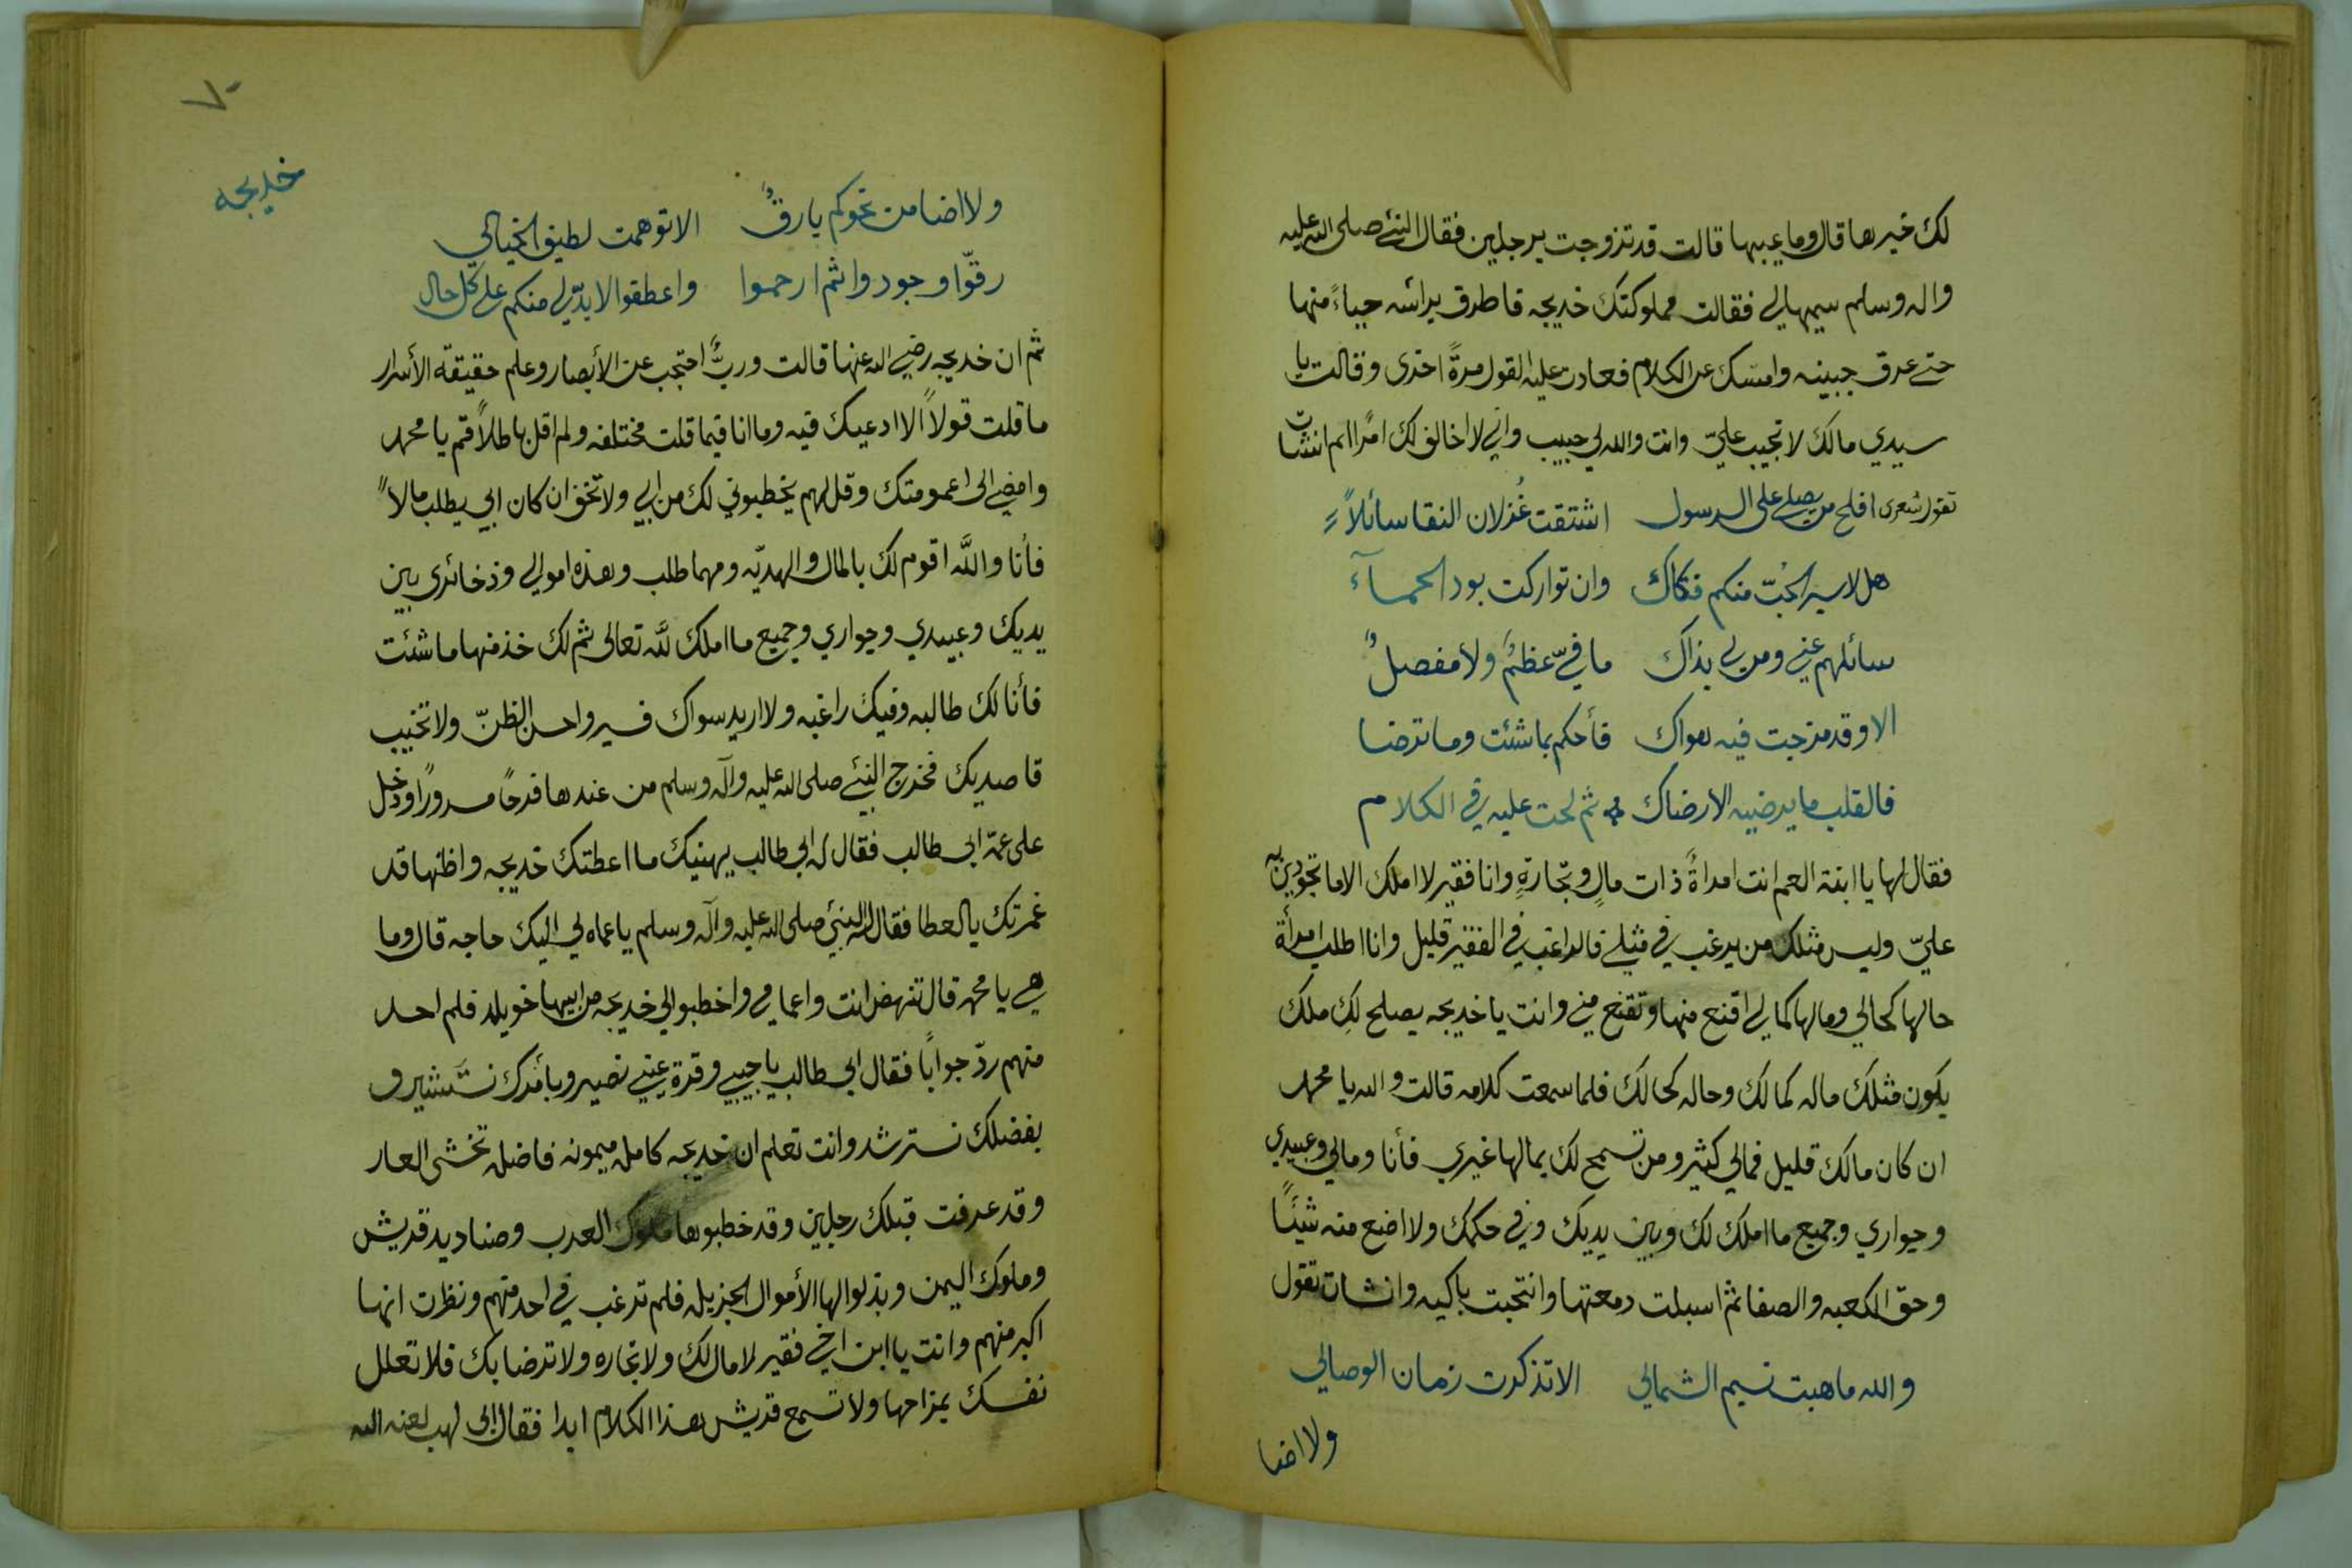 لك خيرها قال وما عيبها قالت قد تزوجت برجلين فقال النبي صلى الله عليه
واله وسلم سيمها لي فقالت مملوكتك خديجه فاطرق براسه حياءً منها
حتى عرق جبينه وامسك عن الكلام فعادت عليه القول مرةً اخرى وقالت يا
سيدي مالك لا تجيب عليّ وانت والله لي حبيب واني لا اخالف لك امرًا ثم انشات
تقول شعرى افلح من يصلي على الرسول اشتقت غزلان النقا سائلاً
هل لاسير الحبّ منكم فكاك وان تواركت بود الحمآء
سائلهم عني ومن لي بذاك ما فيّ عظمٌ ولا مفصلٌ
الا وقد مزجت فيه هواك فأحكم بما شئت وما ترضا
فالقلب ما يرضيه الا رضاك ثم لحت عليه في الكلام
فقال لها يا ابنة العم انت امراةً ذات مالٍ وتجارةٍ وانا فقير لا املك الا ما تجودين به
عليّ وليس مثلك من يرغب في مثيلي فالراغب في الفقير قليل وانا اطلب امرأة
حالها كحالي ومالها كمالي اقنع منها وتقنع مني وانت يا خديجه يصلح لكِ ملك
يكون مثلك ماله كمالك وحاله كحالك فلما سمعت كلامه قالت والله يا محمد
ان كان مالك قليل فمالي كثير ومن تسمح لك بمالها غيري فأنا ومالي وعبيدي
وجواري وجميع ما املك لك وبين يديك وفي حكمك ولا اضع منه شيئًا
وحق الكعبه والصفا ثم اسبلت دمعتها وانتحبت باكيه وانشات تقول
والله ما هبت نسيم الشمالي الا تذكرت زمان الوصالي
ولا اضا
٧٠
خديجه
ولا اضا من نحوكم بارقٌ الا توهمت لطيف الخيالي
رقوّا وجودوا ثم ارحموا واعطفوا لا بدّ لي منكم على كل حال
ثم ان خديجه رضي الله عنها قالت وربٍّ احتجب عن الأبصار وعلم حقيقة الأسرار
ما قلت قولاً الا ادعيك فيه وما انا فيما قلت مختلفه ولم اقل باطلاً قم يا محمد
وامضي الى اعمومتك وقل لهم يخطبوني لك من ابي ولا تخف ان كان ابي يطلب مالاً
فأنا والله اقوم لك بالمال والهديّه ومهما طلب وهذه اموالي وذخائري بين
يديك وعبيدي وجواري وجميع ما املك لله تعالى ثم لك خذ منها ما شئت
فأنا لك طالبه وفيك راغبه ولا اريد سواك فسير واحسن الظنّ ولا تخيب
قاصديك فخرج النبي صلى الله عليه وآله وسلم من عندها فرحًا مسرورًا ودخل
على عمّه ابي طالب فقال له ابي طالب يهنيك ما اعطتك خديجه واظنها قد
غمرتك بالعطا فقال له النبي صلى الله عليه وآله وسلم يا عماه لي اليك حاجه قال وما
هي يا محمد قال تنهض انت واعمامي واخطبوا لي خديجه من ابيها خويلد فلم احد
منهم ردّ جوابًا فقال ابي طالب يا حبيبي وقرة عيني نصير وبأمرك نستشير و
بفضلك نسترشد وانت تعلم ان خديجه كامله ميمونه فاضله تخشى العار
وقد عرفت قبلك رجلين وقد خطبوها ملوك العرب وصناديد قريش
وملوك اليمن وبذلوا لها الأموال الجزيله فلم ترغب في احد منهم ونظرت انها
اكبر منهم وانت يا ابن اخي فقير لا مال لك ولا تجاره ولا ترضا بك فلا تعلل
نفسك بمزاحها ولا تسمع قريش هذا الكلام ابدا فقال ابى لهب لعنه الله